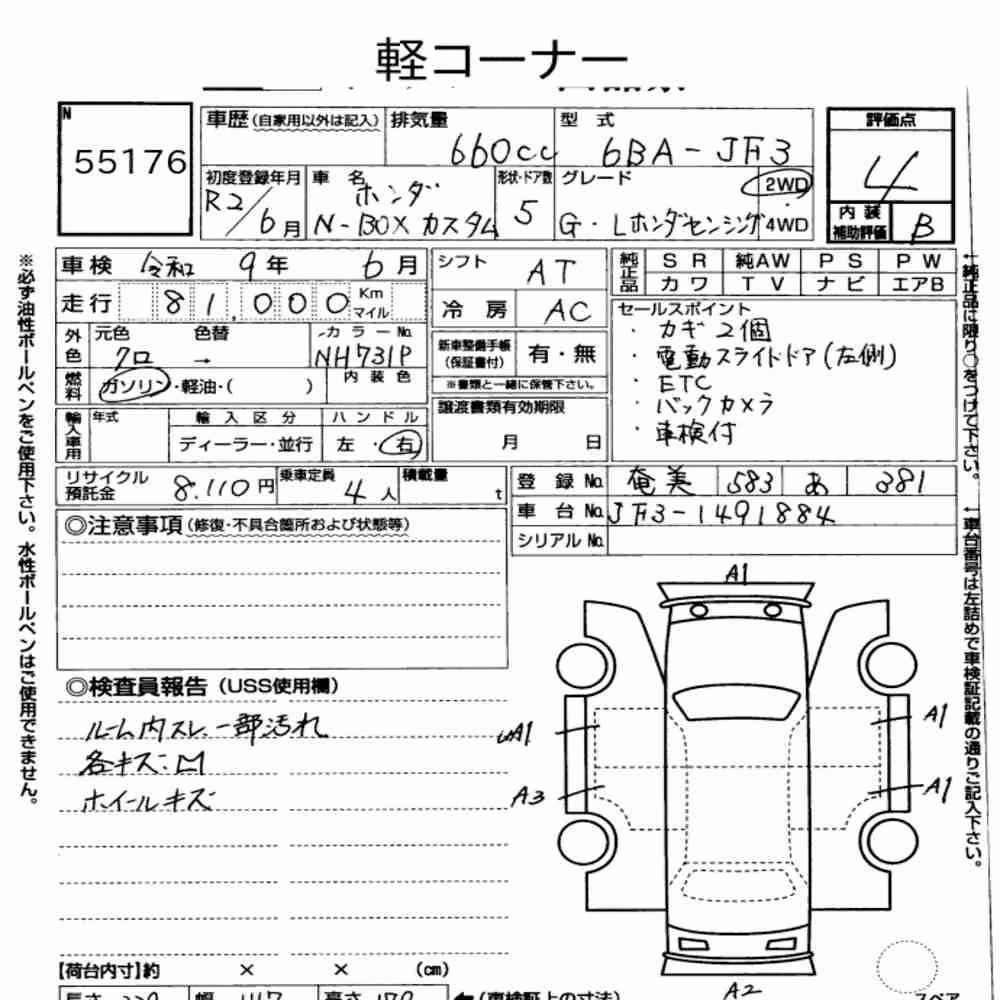 軽コーナー
N
55176
車歴(自家用以外は記入) 排気量 660cc 型式 6BA-JF3
評価点 4
内装補助評価 B
初度登録年月 R2/6月 車名 ホンダ N-BOXカスタム 形状・ドア数 5 グレード G・Lホンダセンシング 2WD 4WD
車検 令和 9年 6月
走行 81,000 Km マイル
シフト AT
冷房 AC
純正品 SR 純AW PS PW
カワ TV ナビ エアB
外色 元色 クロ 色替 → カラーNo. NH731P
燃料 ガソリン・軽油・( ) 内装色
新車整備手帳(保証書付) 有・無
※書類と一緒に保管下さい。
セールスポイント
・カギ2個
・電動スライドドア(左側)
・ETC
・バックカメラ
・車検付
輸入車用 年式 輸入区分 ディーラー・並行 ハンドル 左・右
譲渡書類有効期限 月 日
リサイクル預託金 8.110円 乗車定員 4人 積載量 t
登録No. 奄美 583 あ 381
車台No. JF3-1491884
シリアルNo.
◎注意事項(修復・不具合箇所および状態等)
◎検査員報告(USS使用欄)
ルーム内スレ 一部汚れ
各キズ:凹
ホイールキズ
A1
A1
A1
A3
A1
A2
スペア
【荷台内寸】約 × × (cm)
長さ 幅 高さ (車検証上の寸法)
※必ず油性ボールペンをご使用下さい。水性ボールペンはご使用できません。
↑純正品に限り○をつけて下さい。
↑車台番号は左詰めで車検証記載の通りご記入下さい。